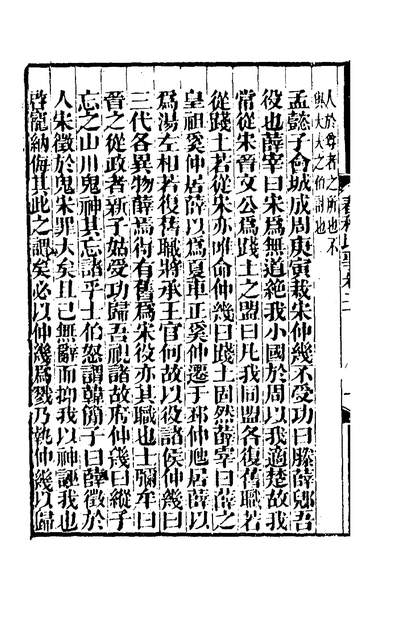 人於尊者之所也不
與大夫之伯討也
孟懿子會城成周庚寅栽宋仲幾不受功曰滕薛郳吾
役也薛宰曰宋爲無道絶我小國於周以我適楚故我
常從宋晉文公爲踐土之盟曰凡我同盟各復舊職若
從踐土若從宋亦唯命仲幾曰踐土固然薛宰曰薛之
皇祖奚仲居薛以爲夏車正奚仲遷于邳仲虺居薛以
爲湯左相若復舊職將承王官何故以役諸侯仲幾曰
三代各異物薛焉得有舊爲宋役亦其職也士彌牟曰
晉之從政者新子姑受功歸吾視諸故府仲幾曰縱子
忘之山川鬼神其忘諸乎士伯怒謂韓簡子曰薛徵於
人宋徵於鬼宋罪大矣且己無辭而抑我以神誣我也
啓寵納侮其此之謂矣必以仲幾爲戮乃執仲幾以歸